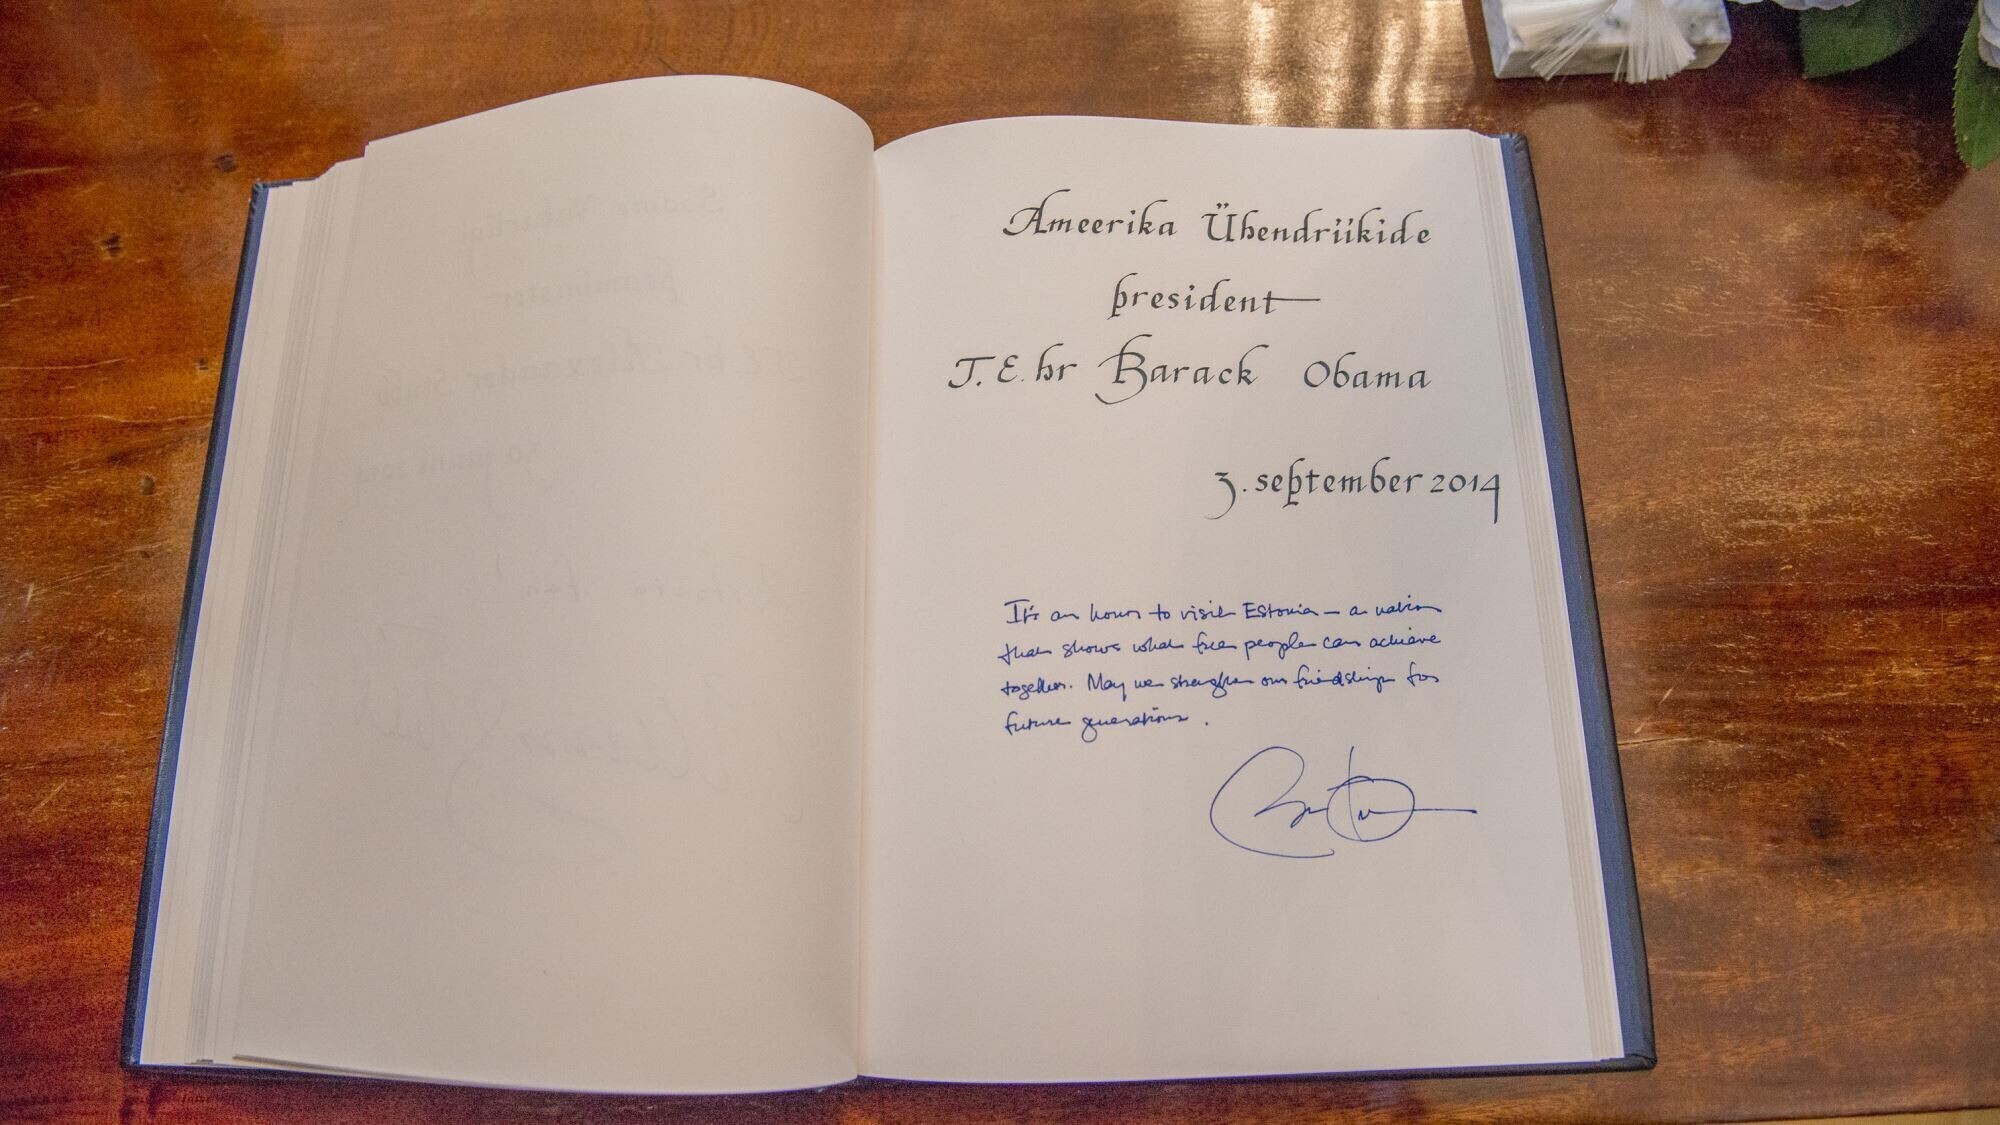 Ameerika Ühendriikide
president
T. E. hr Barack Obama
3. september 2014
It's an honor to visit Estonia — a nation
that shows what free people can achieve
together. May we strengthen our friendship for
future generations.